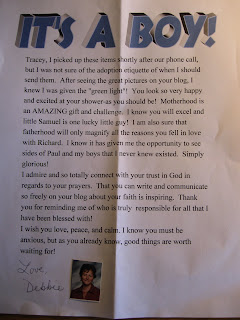 IT'S A BOY!
Tracey, I picked up these items shortly after our phone call,
but I was not sure of the adoption etiquette of when I should
send them. After seeing the great pictures on your blog, I
knew I was given the "green light"! You look so very happy
and excited at your shower-as you should be! Motherhood is
an AMAZING gift and challenge. I know you will excel and
little Samuel is one lucky little guy! I am also sure that
fatherhood will only magnify all the reasons you fell in love
with Richard. I know it has given me the opportunity to see
sides of Paul and my boys that I never knew existed. Simply
glorious!
I admire and so totally connect with your trust in God in
regards to your prayers. That you can write and communicate
so freely on your blog about your faith is inspiring. Thank
you for reminding me of who is truly responsible for all that I
have been blessed with!
I wish you love, peace, and calm. I know you must be
anxious, but as you already know, good things are worth
waiting for!
Love,
Debbie